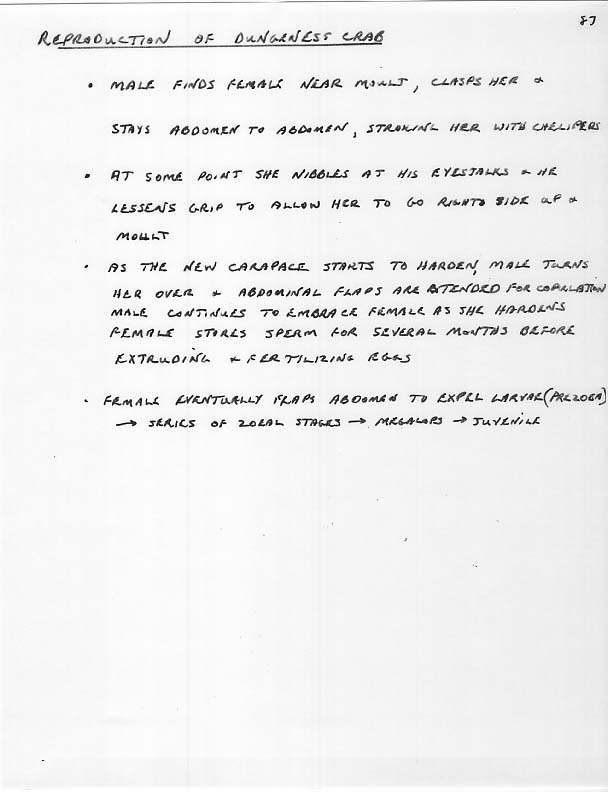 87
REPRODUCTION OF DUNGENESS CRAB
• MALE FINDS FEMALE NEAR MOULT, CLASPS HER &
STAYS ABDOMEN TO ABDOMEN, STROKING HER WITH CHELIPERS
• AT SOME POINT SHE NIBBLES AT HIS EYESTALKS & HE
LESSENS GRIP TO ALLOW HER TO GO RIGHT SIDE UP &
MOULT
• AS THE NEW CARAPACE STARTS TO HARDEN, MALE TURNS
HER OVER & ABDOMINAL FLAPS ARE EXTENDED FOR COPULATION
MALE CONTINUES TO EMBRACE FEMALE AS SHE HARDENS
FEMALE STORES SPERM FOR SEVERAL MONTHS BEFORE
EXTRUDING & FERTILIZING EGGS
• FEMALE EVENTUALLY FLAPS ABDOMEN TO EXPEL LARVAE (PREZOEA)
→ SERIES OF ZOEAL STAGES → MEGALOPS → JUVENILE